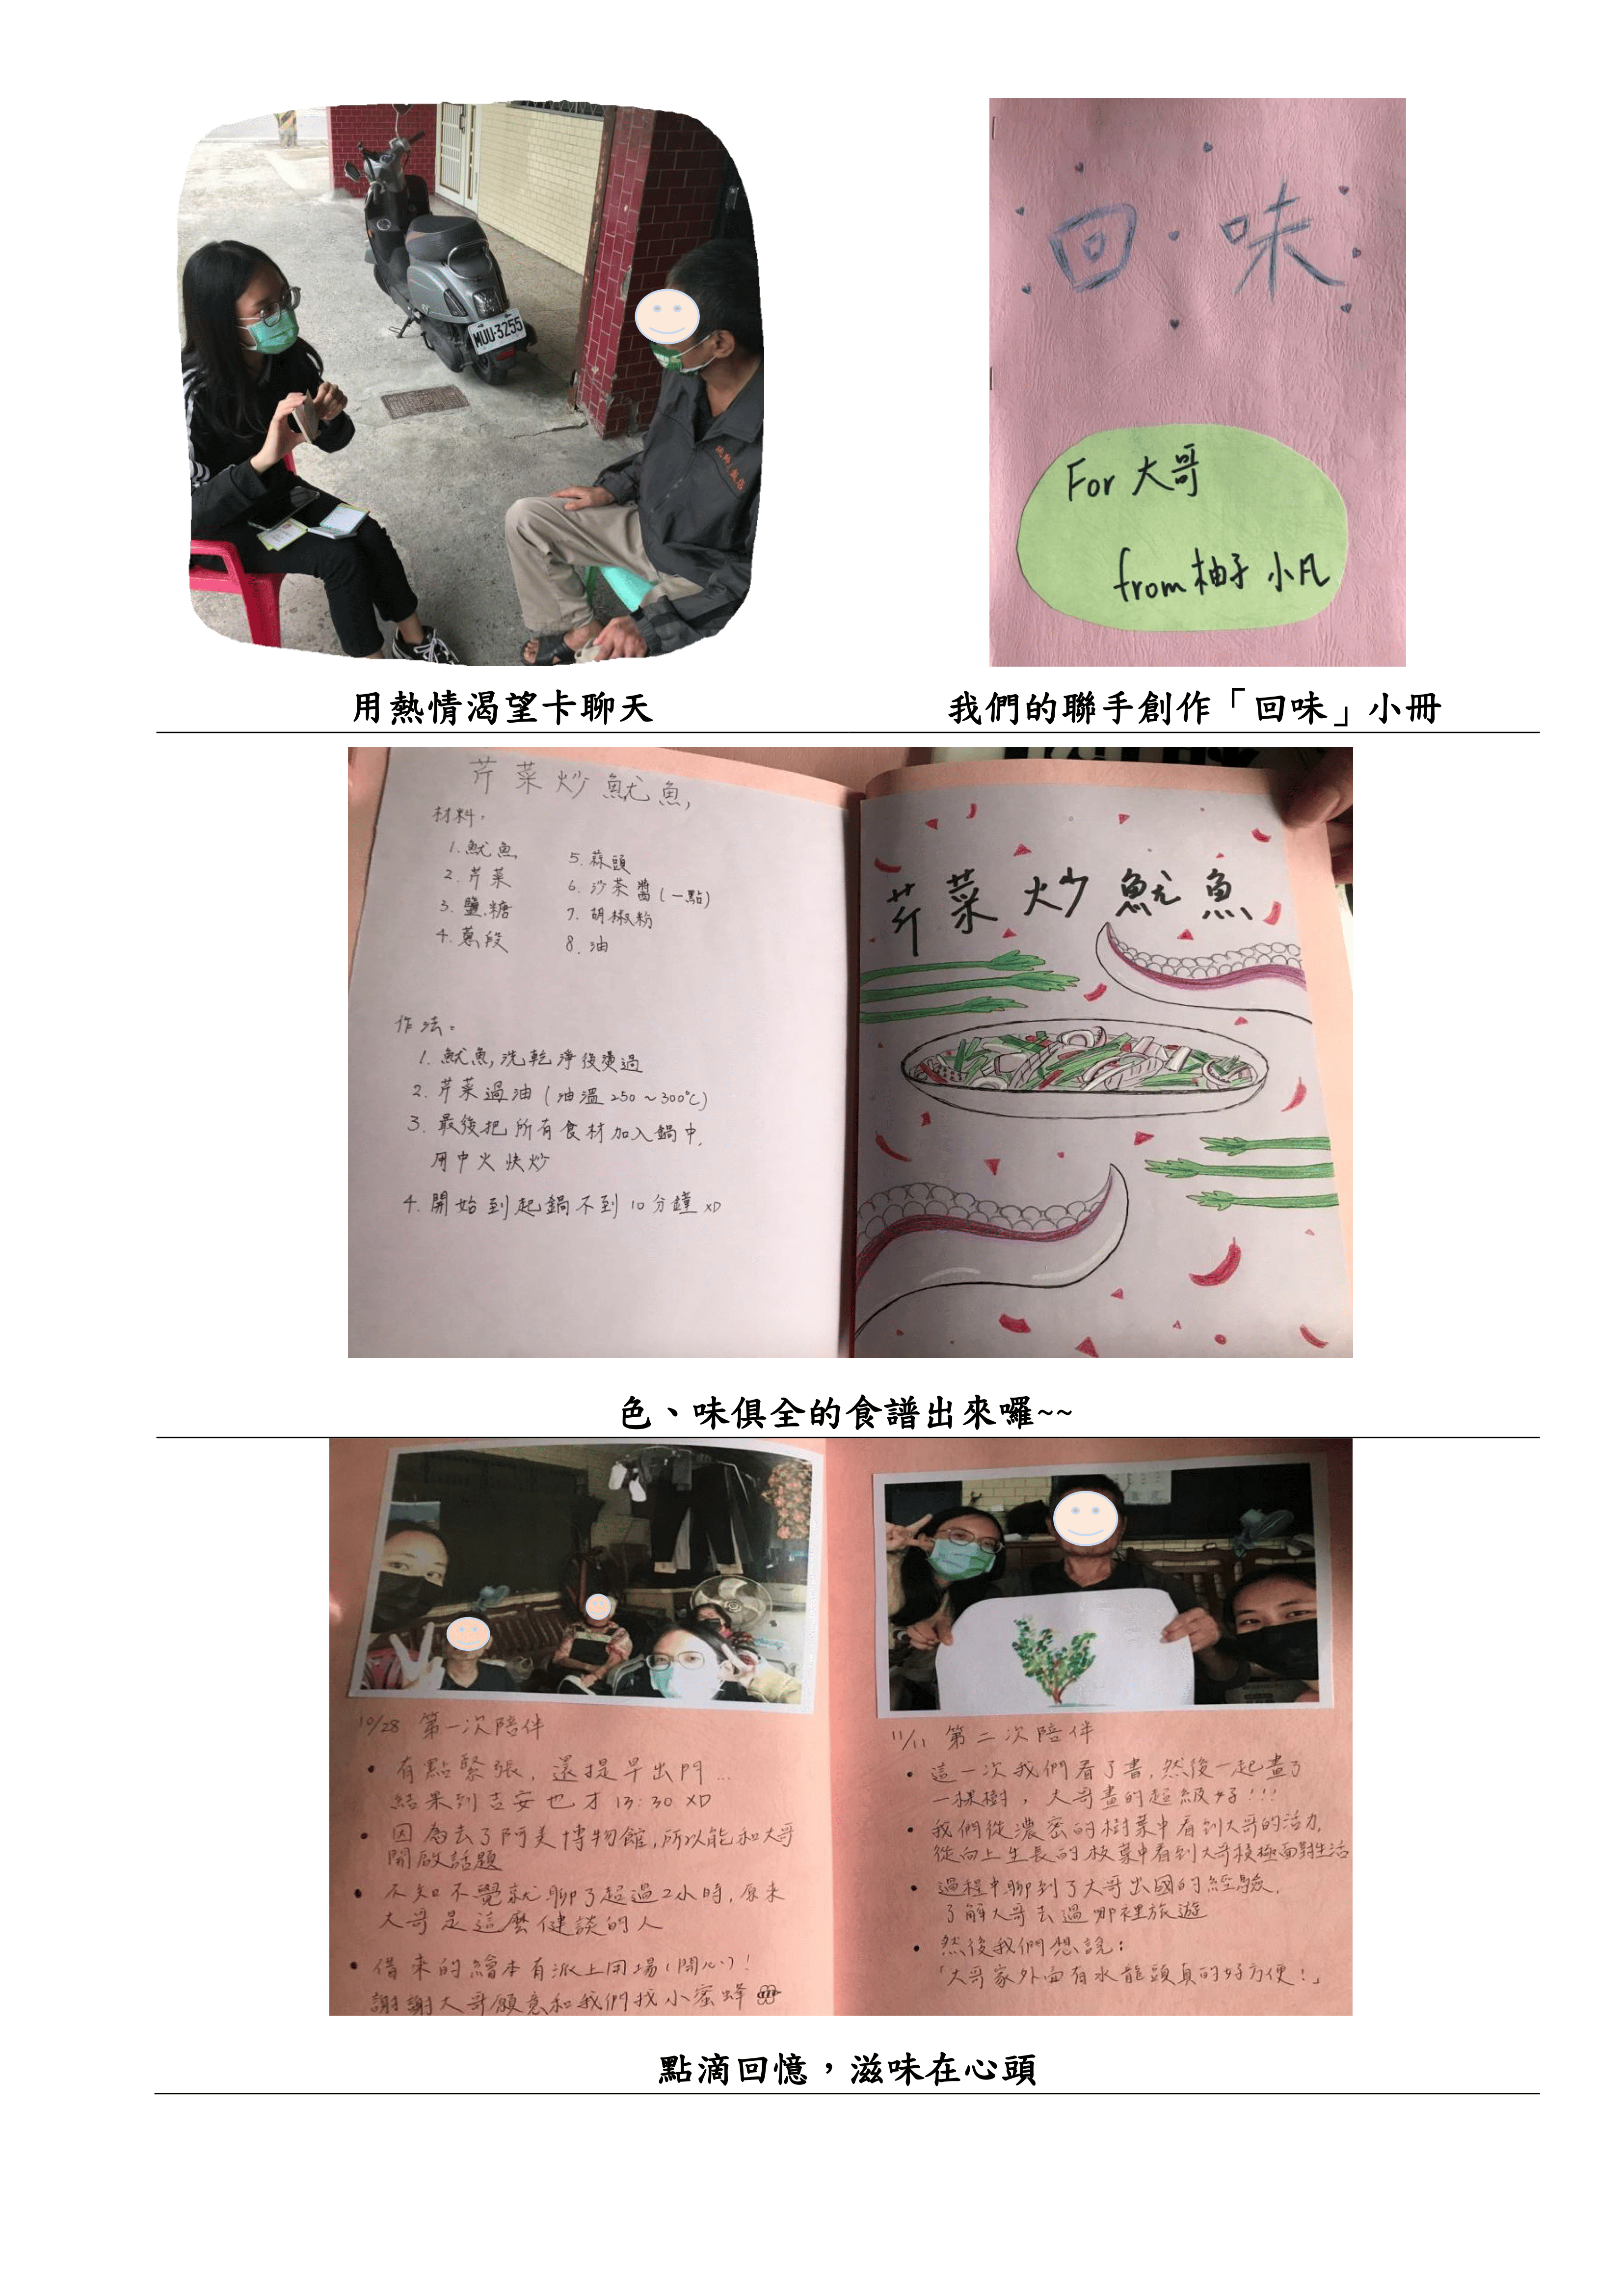 MUU-3255
回味
For 大哥
from 柚子 小凡
用熱情渴望卡聊天
我們的聯手創作「回味」小冊
芹菜炒魷魚
材料:
1. 魷魚
2. 芹菜
3. 鹽.糖
4. 蔥段
5. 蒜頭
6. 沙茶醬(一點)
7. 胡椒粉
8. 油
作法:
1. 魷魚洗乾淨後燙過
2. 芹菜過油(油溫250~300℃)
3. 最後把所有食材加入鍋中,
用中火快炒
4. 開始到起鍋不到10分鐘XD
芹菜炒魷魚
色、味俱全的食譜出來囉~~
10/28 第一次陪伴
• 有點緊張,還提早出門...
結果到吉安也才13:30 XD
• 因為去了阿美博物館,所以能和大哥
開啟話題
• 不知不覺就聊了超過2小時,原來
大哥是這麼健談的人
• 借來的繪本有派上用場(開心)!
謝謝大哥願意和我們找小蜜蜂
11/11 第二次陪伴
• 這一次我們看了書,然後一起畫了
一棵樹,大哥畫的超級好!!!
• 我們從濃密的樹葉中看到大哥的活力,
從向上生長的枝葉中看到大哥積極面對生活
• 過程中聊到了大哥出國的經驗,
了解大哥去過哪裡旅遊
• 然後我們想說:
「大哥家外面有水龍頭真的好方便!」
點滴回憶,滋味在心頭